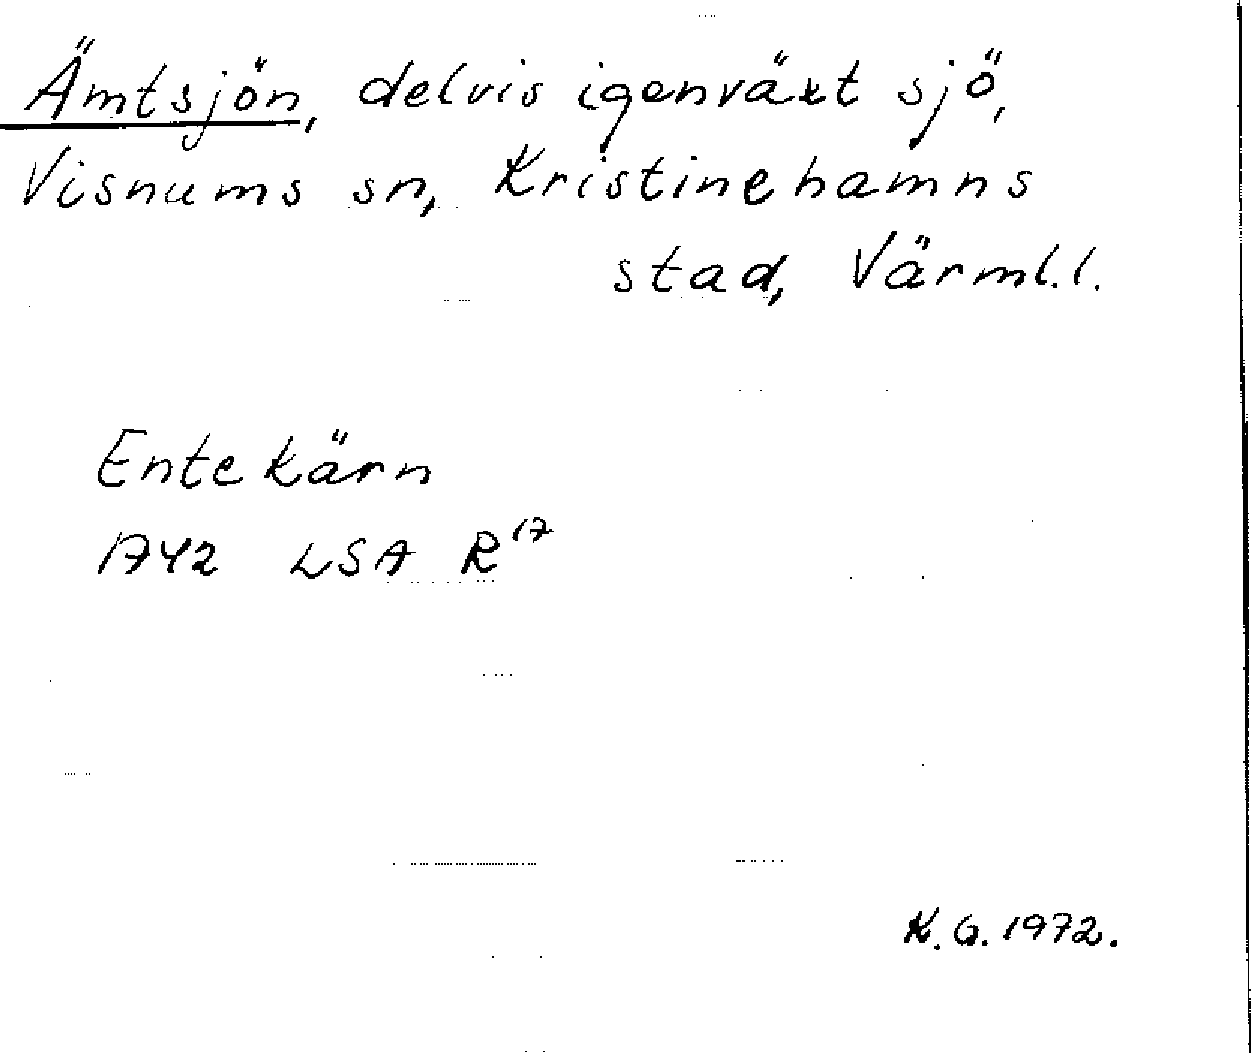 Ämtsjön, delvis igenväxt sjö,
Visnums sn, Kristinehamns
stad, Värml.l.
Entekärn
1742 LSA R¹⁷
K.G. 1972.